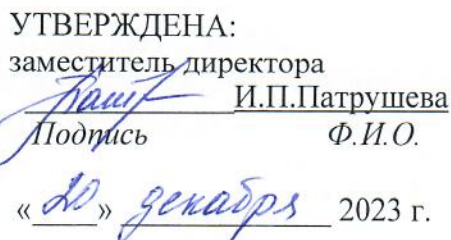 УТВЕРЖДЕНА:
заместитель директора
И.П.Патрушева
Подпись Ф.И.О.
«20» декабря 2023 г.